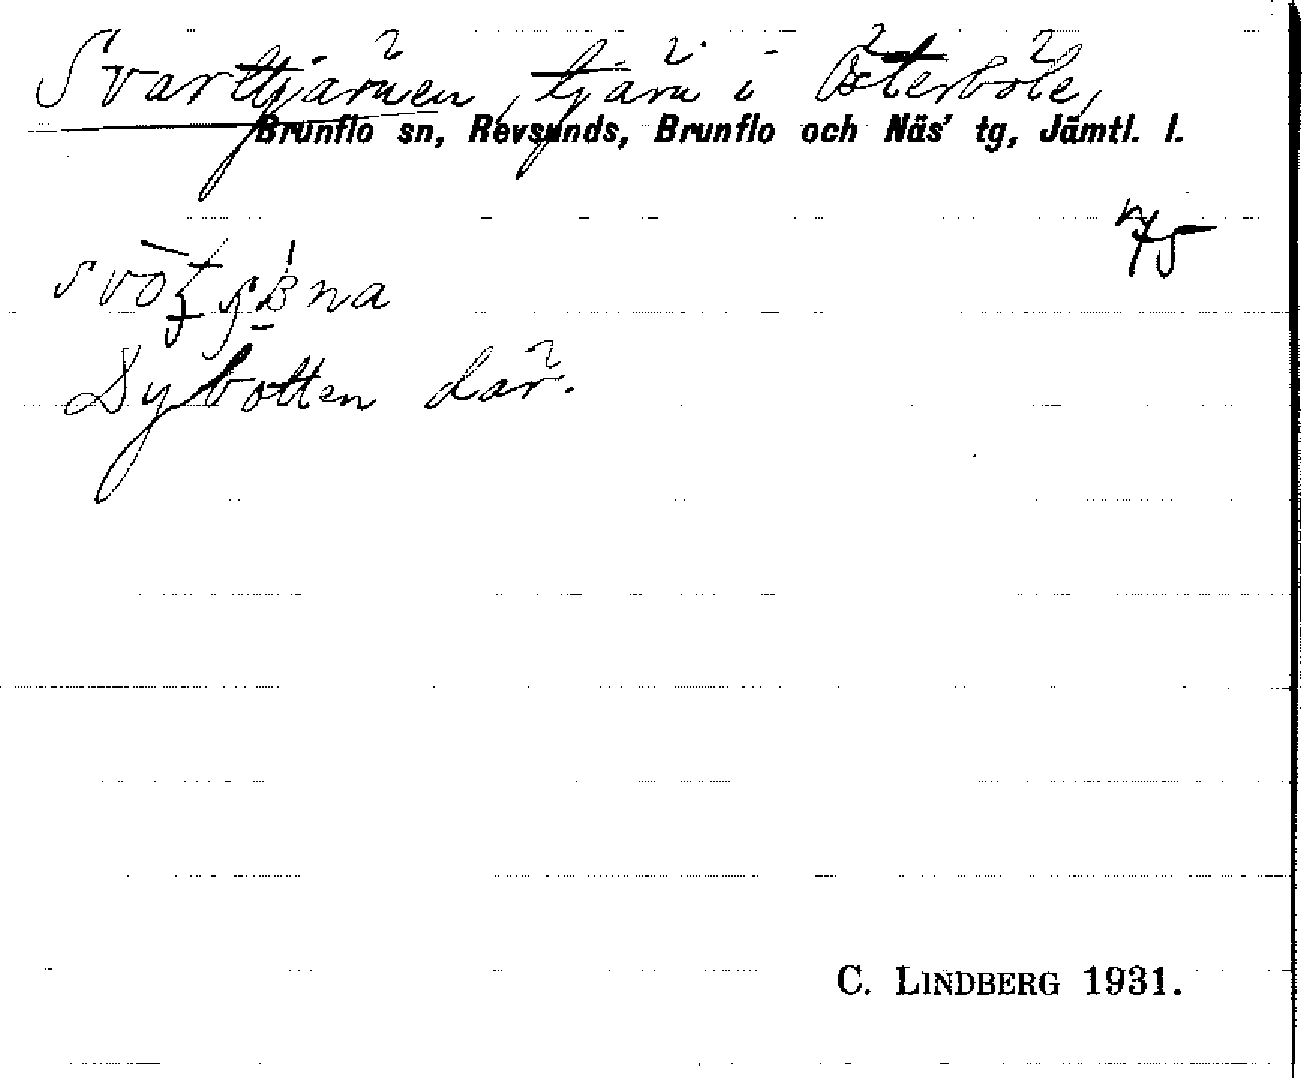 Svarttjärnen, tjärn i Österböle,
Brunflo sn, Revsunds, Brunflo och Näs' tg, Jämtl. l.
75
Dybotten där.
C. LINDBERG 1931.